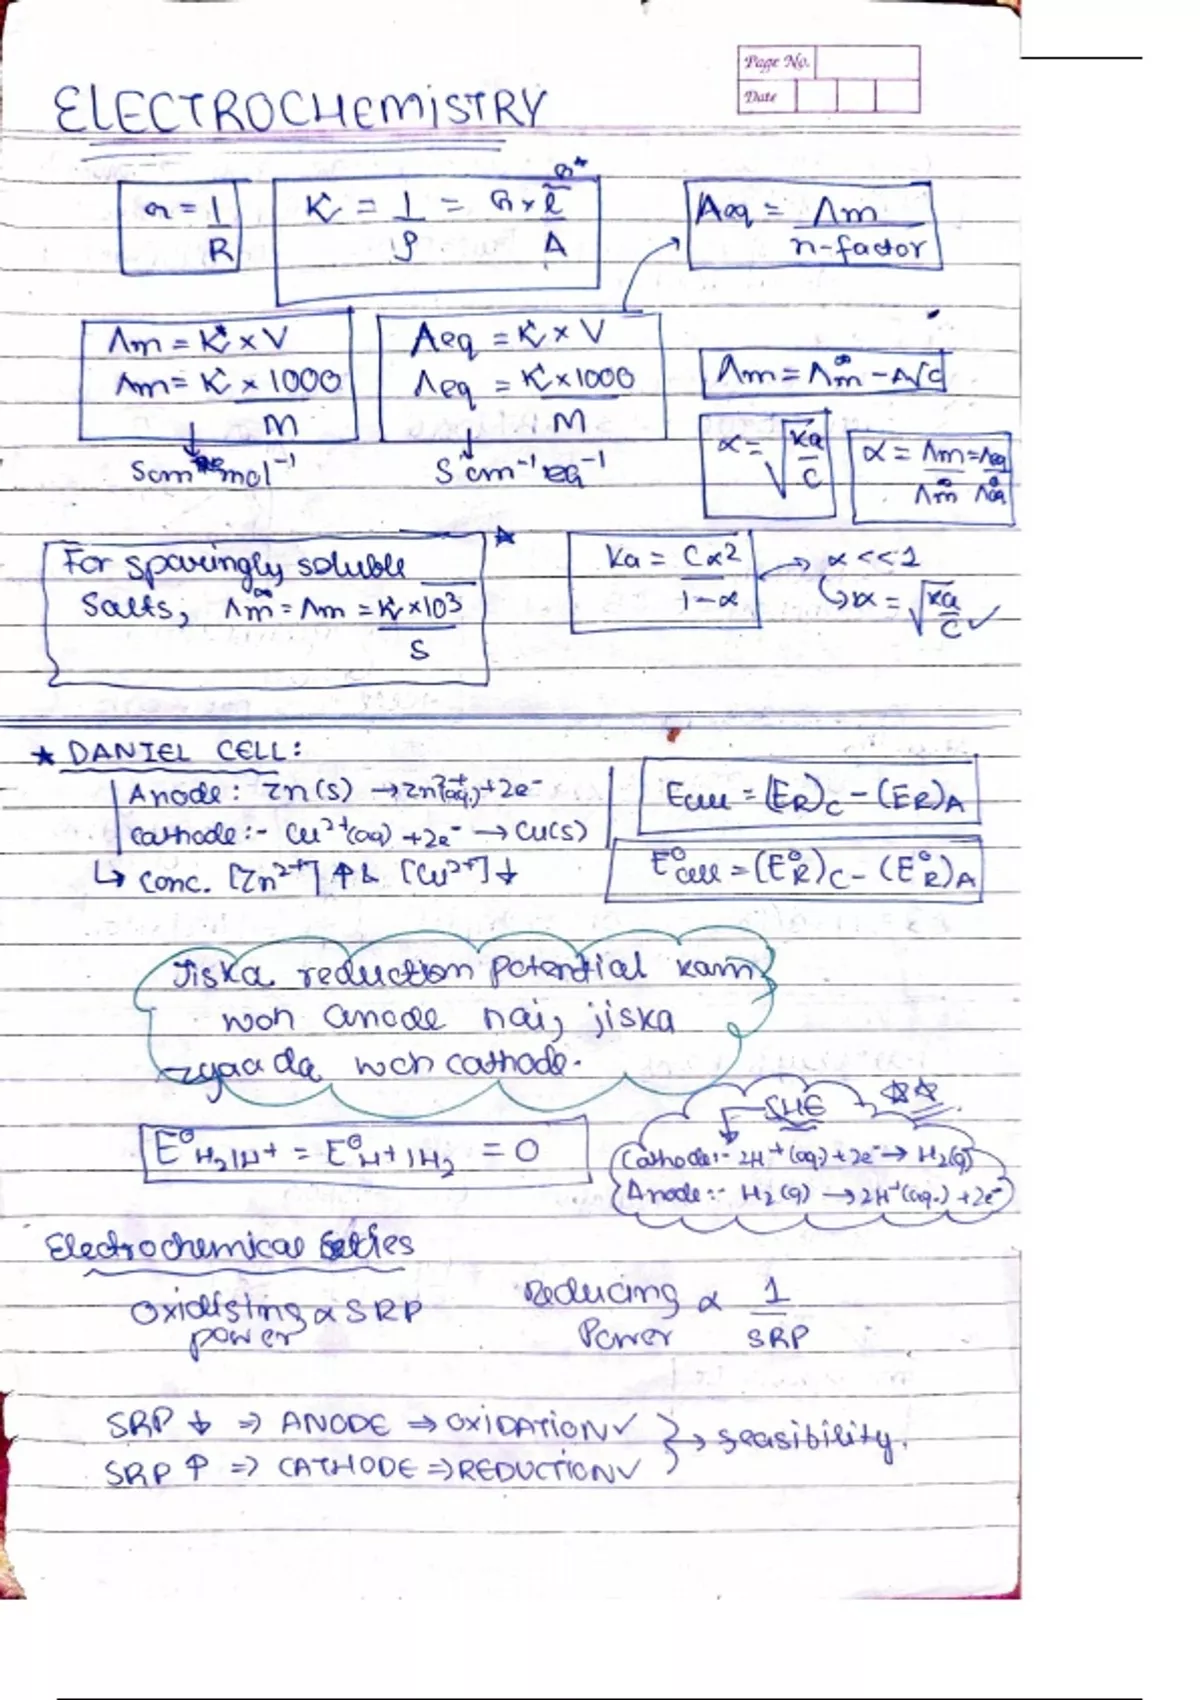 Page No.
Date
ELECTROCHEMISTRY
G = 1/R
K = 1/ρ = G × l/A
G*
Λeq = Λm/n-factor
Λm = K × V
Λm = K × 1000/M
Scm mol⁻¹
Λeq = K × V
Λeq = K × 1000/M
S cm⁻¹ eq⁻¹
Λm = Λm^∞ - A√C
α = √(Ka/C)
α = Λm/Λm^∞ = Λeq/Λeq^∞
For sparingly soluble
Salts, Λm^∞ = Λm = K × 10³/S
Ka = Cα²/1-α
α << 1
α = √(Ka/C) ✓
★ DANIEL CELL:
Anode: Zn(s) → Zn²⁺(aq.) + 2e⁻
Cathode:- Cu²⁺(aq) + 2e⁻ → Cu(s)
↳ Conc. [Zn²⁺] ↑ & [Cu²⁺] ↓
Ecell = (ER)C - (ER)A
E°cell = (E°R)C - (E°R)A
Jiska reduction potential kam
woh anode hai, jiska
zyaada woh cathode.
E°H₂|H⁺ = E°H⁺|H₂ = 0
SHE ☆☆
Cathode:- 2H⁺(aq) + 2e⁻ → H₂(g)
Anode:- H₂(g) → 2H⁺(aq.) + 2e⁻
Electrochemical Series
Oxidisting power ∝ SRP
Reducing Power ∝ 1/SRP
SRP ↓ ⇒ ANODE ⇒ OXIDATION ✓
SRP ↑ ⇒ CATHODE ⇒ REDUCTION ✓
} → feasibility.